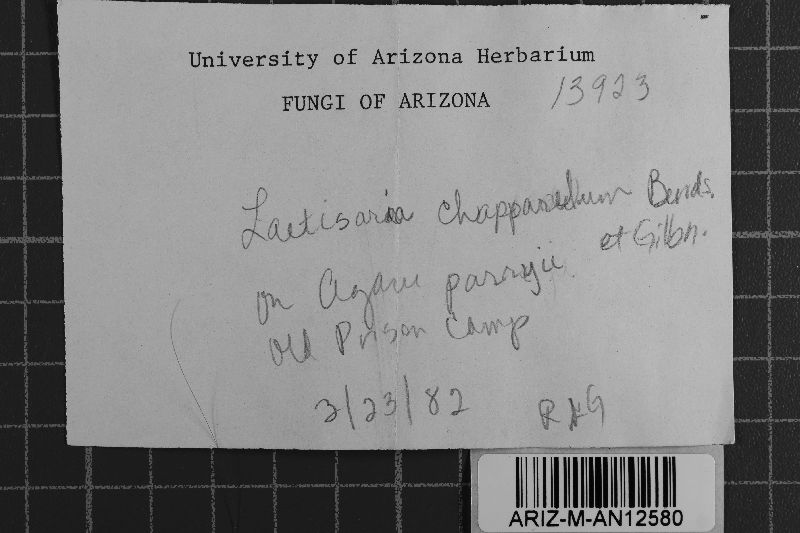 University of Arizona Herbarium
FUNGI OF ARIZONA 13923
Laetisaria chapparellum Bernds.
et Gilbn.
on Agave parryii
Old Prison Camp
3/23/82 RLG
ARIZ-M-AN12580